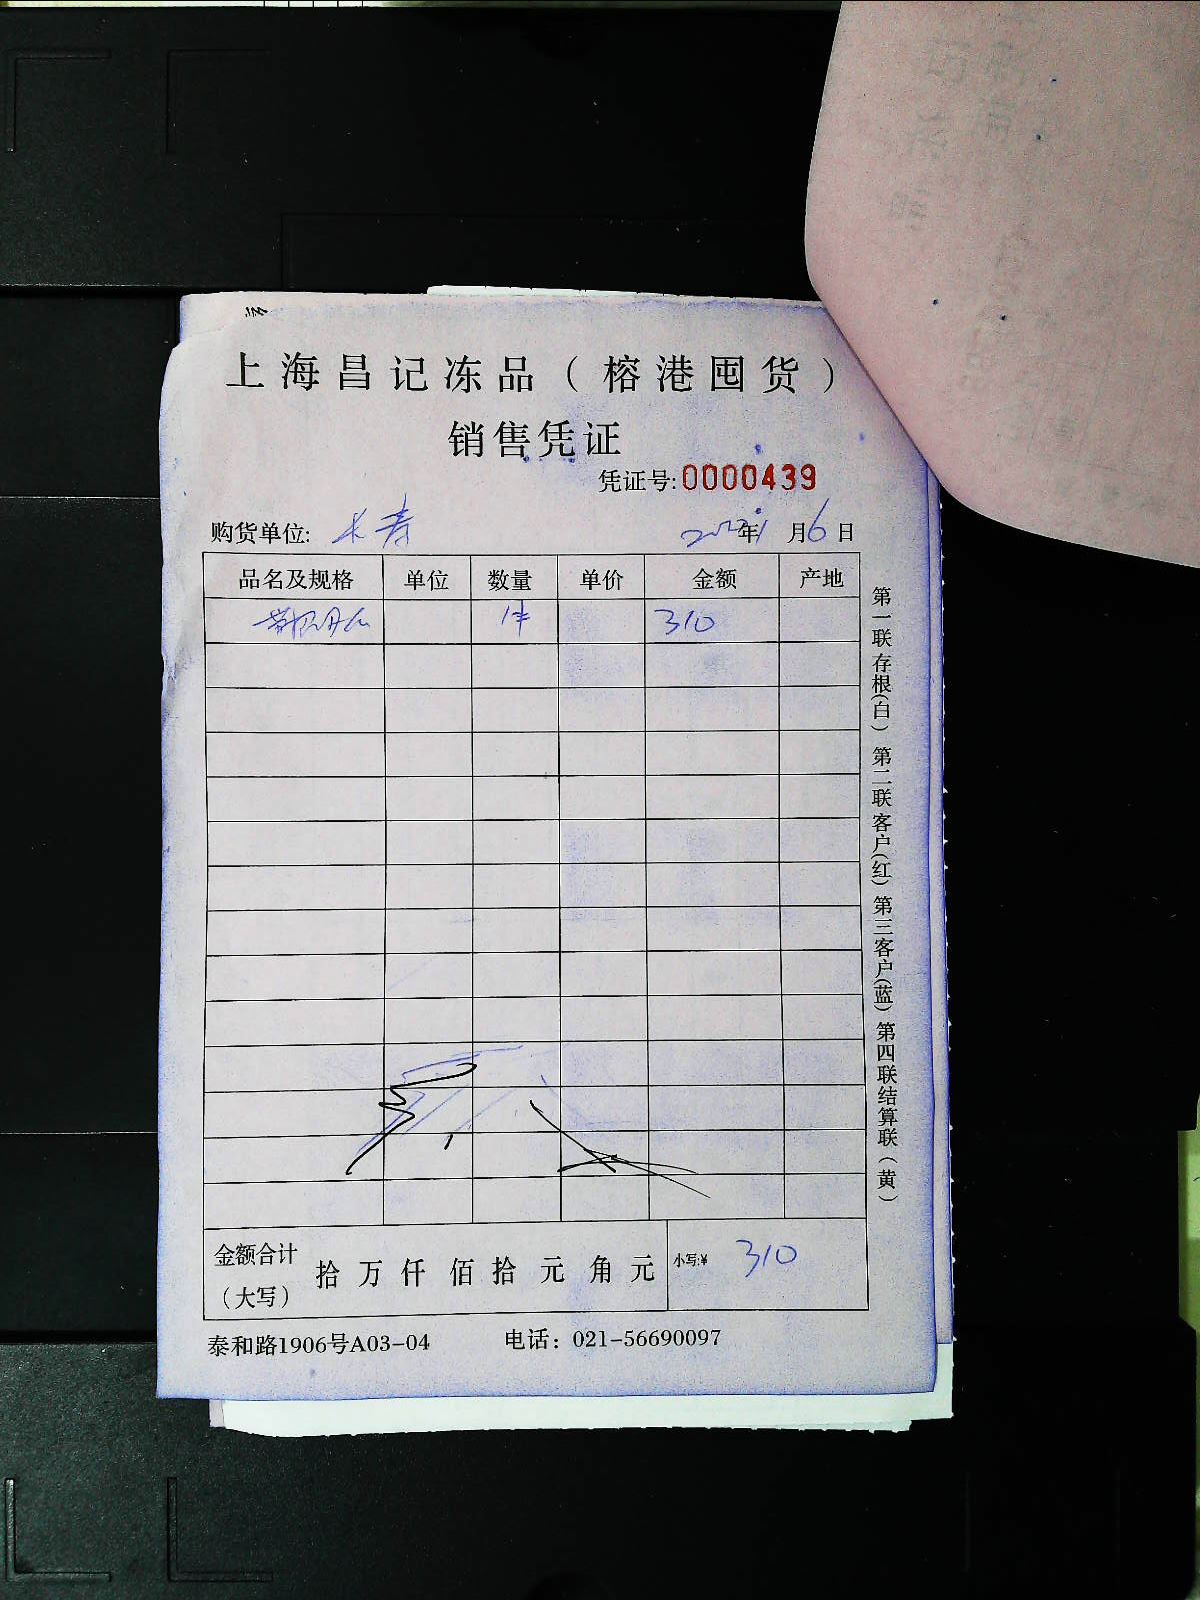 上海昌记冻品（榕港囤货）
销售凭证
凭证号:0000439
购货单位: 长寿 年 月6日
品名及规格 单位 数量 单价 金额 产地
1件 310
金额合计（大写） 拾 万 仟 佰 拾 元 角 元 小写:¥ 310
泰和路1906号A03-04 电话：021-56690097
第一联存根(白) 第二联客户(红) 第三客户(蓝) 第四联结算联(黄)